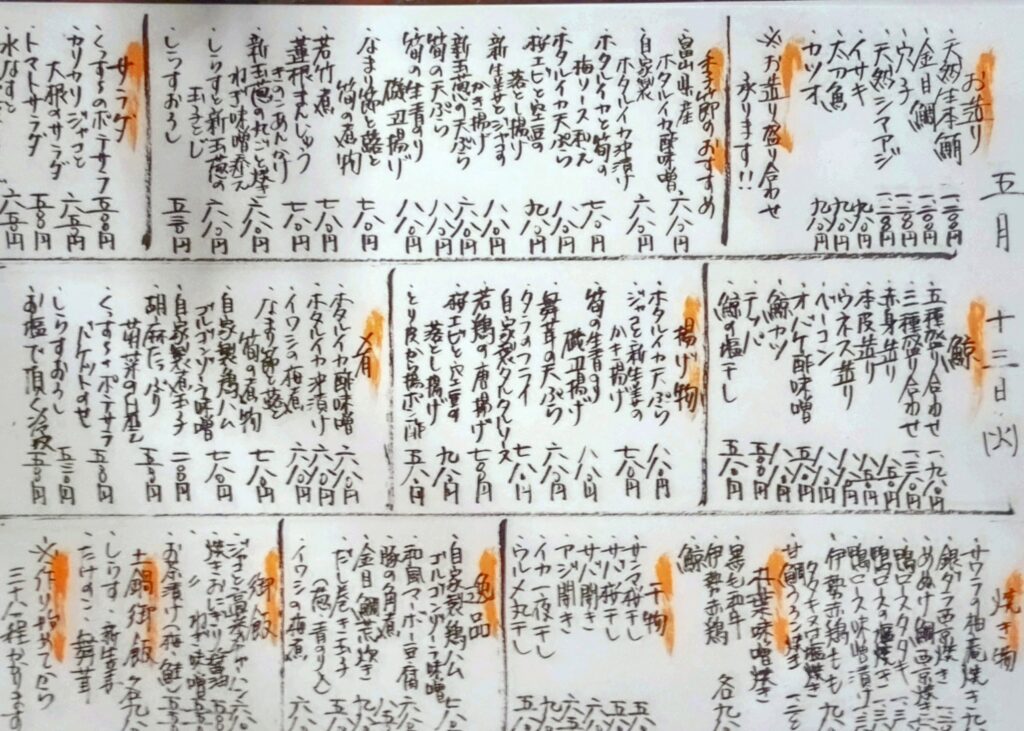 五月 十三日(火)
お造り
・天然生本鮪 一二〇〇円
・金目鯛 一二〇〇円
・穴子 一二〇〇円
・天然シマアジ 一二〇〇円
・イサキ 九八〇円
・太刀魚 九八〇円
・カツオ 九八〇円
※お造り盛り合わせ
承ります!!
のおすすめ
・富山県産
ホタルイカ酢味噌 六八〇円
・自家製
ホタルイカ沖漬け 六八〇円
・ホタルイカと筍の
梅ソース和え 七八〇円
・ホタルイカ天ぷら 八八〇円
・桜エビと空豆の
落とし揚げ 九八〇円
・新生姜とジャコの
かき揚げ 八八〇円
・新玉葱の天ぷら 六八〇円
・筍の天ぷら 八八〇円
・筍の生青のり
磯辺揚げ 八八〇円
・なまり節と蕗と
筍の煮物 七八〇円
・若竹煮 七八〇円
・蓮根まんじゅう
きのこあんかけ 七八〇円
・新玉葱の丸ごと揚げ
ねぎ味噌添え 六八〇円
・しらすと新玉葱の
玉子とじ 六八〇円
・しらすおろし 五三〇円
サラダ
・くすおのポテサラ 五八〇円
・カリカリジャコと
大根のサラダ 六五〇円
・トマトサラダ 五八〇円
・水なすと 六五〇円
鯨
・五種盛り合わせ 一九八〇円
・三種盛り合わせ 一三八〇円
・赤身造り
・本皮造り
・ウネス造り
・ベーコン
・オバケ酢味噌
・鯨カツ
・テッパ
・鯨の塩干し 五八〇円
揚げ物
・ホタルイカ天ぷら 八八〇円
・ジャコと新生姜の
かき揚げ 七八〇円
・筍の生青のり
磯辺揚げ 八八〇円
・舞茸の天ぷら 六八〇円
・タラのフライ
自家製タルタルソース 七八〇円
・若鶏の唐揚げ 七八〇円
・桜エビと空豆の
落とし揚げ 九八〇円
・とり皮から揚ポン酢 五八〇円
肴
・ホタルイカ酢味噌 六八〇円
・ホタルイカ沖漬け 六八〇円
・イワシの梅煮 六八〇円
・なまり節と蕗と
筍の煮物 七八〇円
・自家製鶏ハム
ゴルゴンゾーラ味噌 七八〇円
・自家製煮玉子 二八〇円
・胡麻たっぷり
菊菜の白和え 五八〇円
・くすおのポテサラ
バケットのせ 五八〇円
・しらすおろし 五三〇円
・お塩で頂く冷奴 五八〇円
焼き物
・サワラの柚庵焼き
・銀ダラ西京焼き
・めぬけ鯛西京焼き
・鴨ロースタタキ
・鴨ロースの塩焼き
・鴨ロース味噌漬け
・伊勢赤鶏もも
タタキネギ塩焼き
・甘鯛うろこ焼き
朴葉味噌焼き
・黒毛和牛
・伊勢赤鶏
・鯨 各九八
干物
・サンマ桜干し
・サバ桜干し
・サバ開き
・アジ開き
・イカ一夜干し
・ウルメ丸干し
逸品
・自家製鶏ハム
ゴルゴンゾーラ味噌
・和風マーボー豆腐
・豚の角煮
・金目鯛荒炊き
・だし巻き玉子
(葱、青のり入)
・イワシの梅煮
御飯
・ジャコと高菜チャーハン
・焼きおにぎり 醤油
〃 ねぎ味噌
・お茶漬け(梅、鮭)
土鍋御飯 各九八
・しらす ・新生姜
・たけのこ ・舞茸
※作り始めてから
三十八程かかります